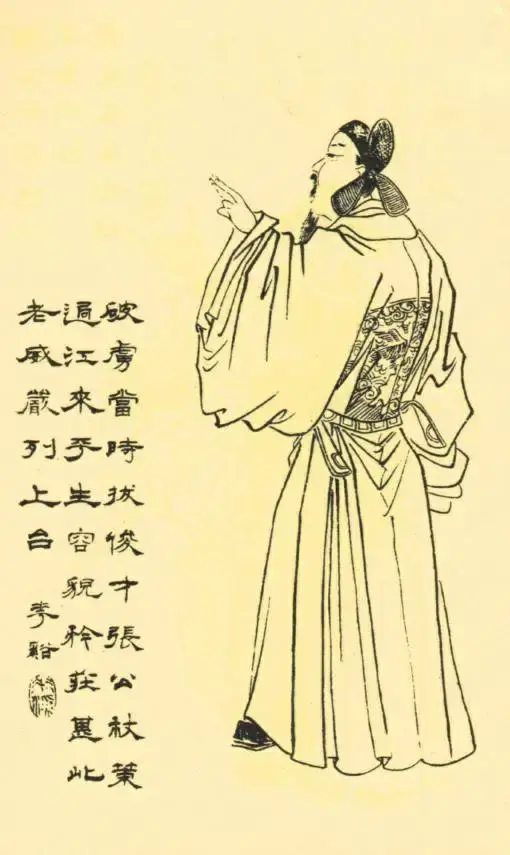 破虜當時拔俊才張公杖策
過江來平生容貌矜莊甚此
老威嚴列上台 李谿